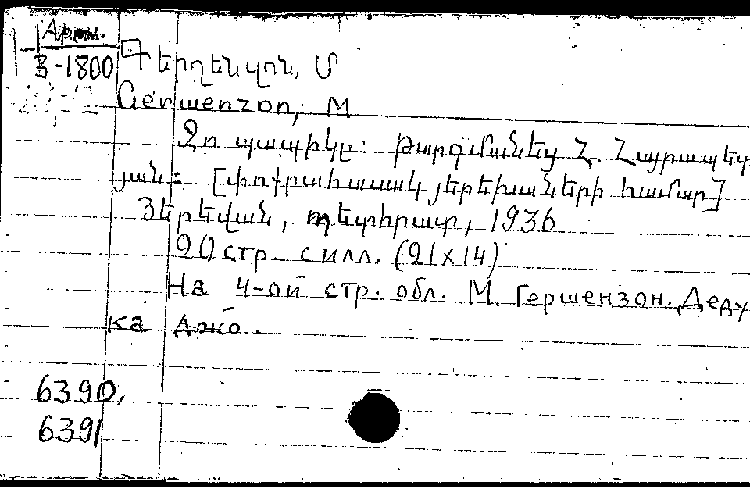 Арм.
3-1800
Գերշենզոն, Մ
Gershenzon, M
Ջո պապիկը: Թարգմանեց Հ. Հայրապետ
յան: [փոքրահասակ յերեխաների համար]
Յերեվան, պետհրատ, 1936
20 стр. с илл. (21x14)
На 4-ой стр. обл. М. Гершензон. Деду
ка Джо.
6390,
6391